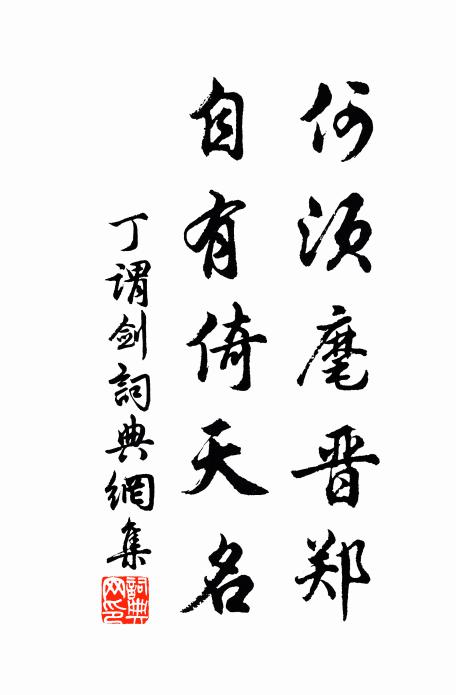 何须麾晋郑
自有倚天名
丁谓剑詞典網集
詞典网印